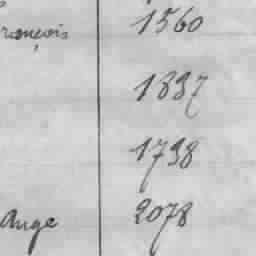 rançois 1560
1897
1798
Ange 2078